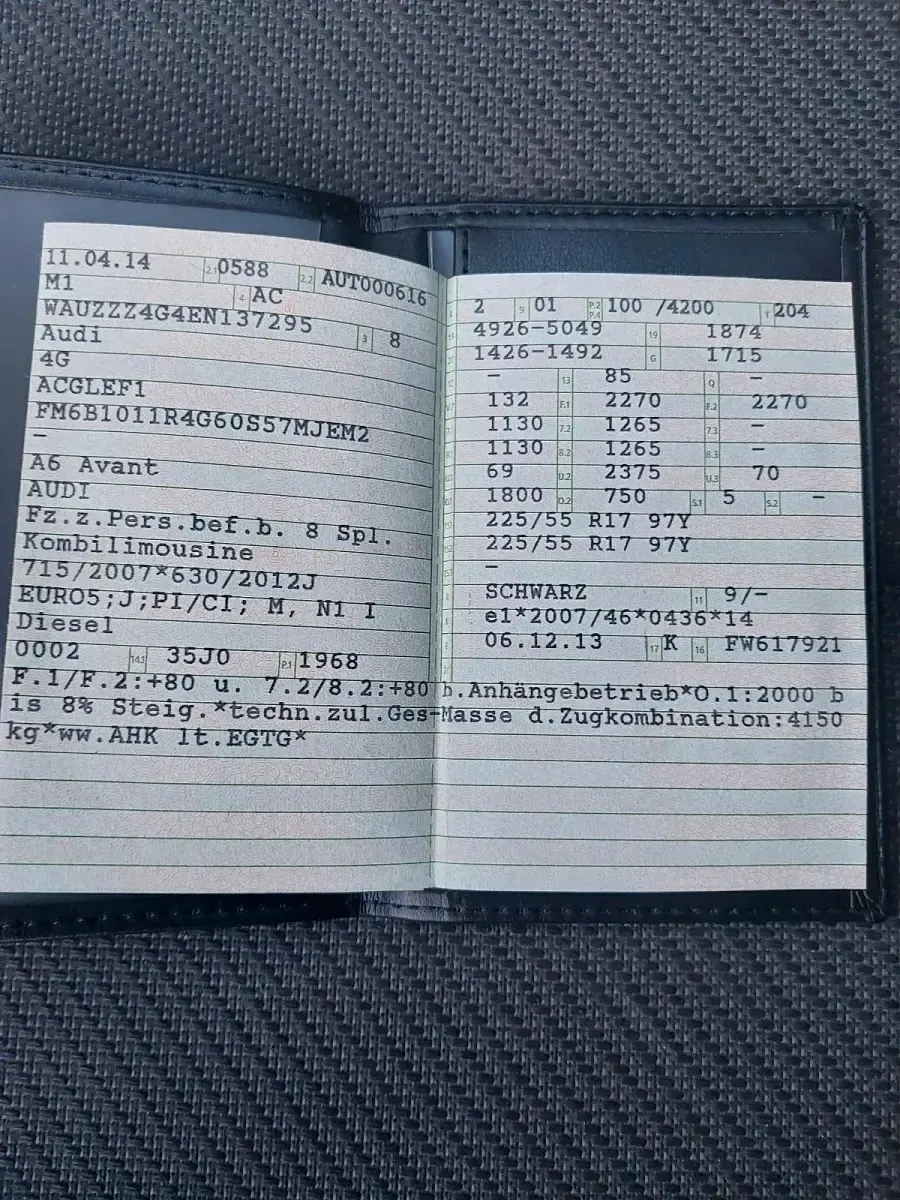 11.04.14 2.1 0588 2.2 AUT000616
M1 4 AC
WAUZZZ4G4EN137295 3 8
Audi
4G
ACGLEF1
FM6B1011R4G60S57MJEM2
–
A6 Avant
AUDI
Fz.z.Pers.bef.b. 8 Spl.
Kombilimousine
715/2007*630/2012J
EURO5;J;PI/CI; M, N1 I
Diesel
0002 14.1 35J0 P.1 1968
2 9 01 P.2 P.4 100 /4200 T 204
4926-5049 19 1874
1426-1492 G 1715
– 13 85 Q –
132 F.1 2270 F.2 2270
1130 7.2 1265 7.3 –
1130 8.2 1265 8.3 –
69 U.2 2375 U.3 70
1800 O.2 750 S.1 5 S.2 –
225/55 R17 97Y
225/55 R17 97Y
–
SCHWARZ 11 9/–
e1*2007/46*0436*14
06.12.13 17 K 16 FW617921
F.1/F.2:+80 u. 7.2/8.2:+80 b.Anhängebetrieb*O.1:2000 b
is 8% Steig.*techn.zul.Ges-Masse d.Zugkombination:4150
kg*ww.AHK lt.EGTG*